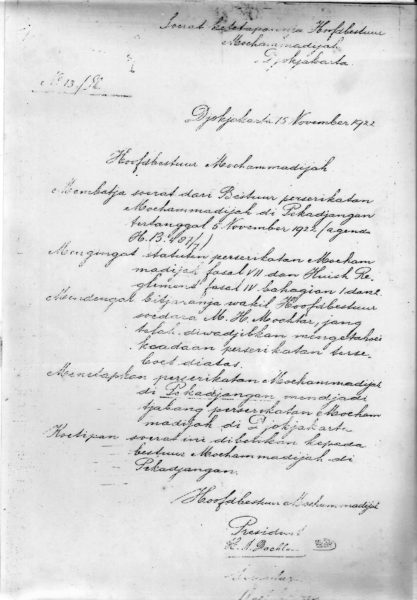 Soerat ketetapannja Hoofdbestuur
Mochammadijah
Djokjakarta.
Djokjakarta 15 November 1922
Hoofdbestuur Mochammadijah
Membatja soerat dari Bestuur perserikatan
Mochammadijah di Pekadjangan
tertanggal 5 November 1922 (agenda
Mengingat statuten perserikatan Mocham
madijah fasal VII dan Huish Re-
glement fasal IV bahagian 1 dan 2.
Mendengar bitjaranja wakil Hoofdbestuur
soedara M. H. Mochtar, jang
telah diwadjibkan mengetahoei
keadaan perserikatan terse-
boet diatas.
Menetapkan perserikatan Mochammadijah
di Pekadjangan mendjadi
tjabang perserikatan Mocham
madijah di Djokjakarta
Koetipan soerat ini diberikan kepada
bestuur Mochammadijah di
Pekadjangan.
Hoofdbestuur Mochammadijah
President